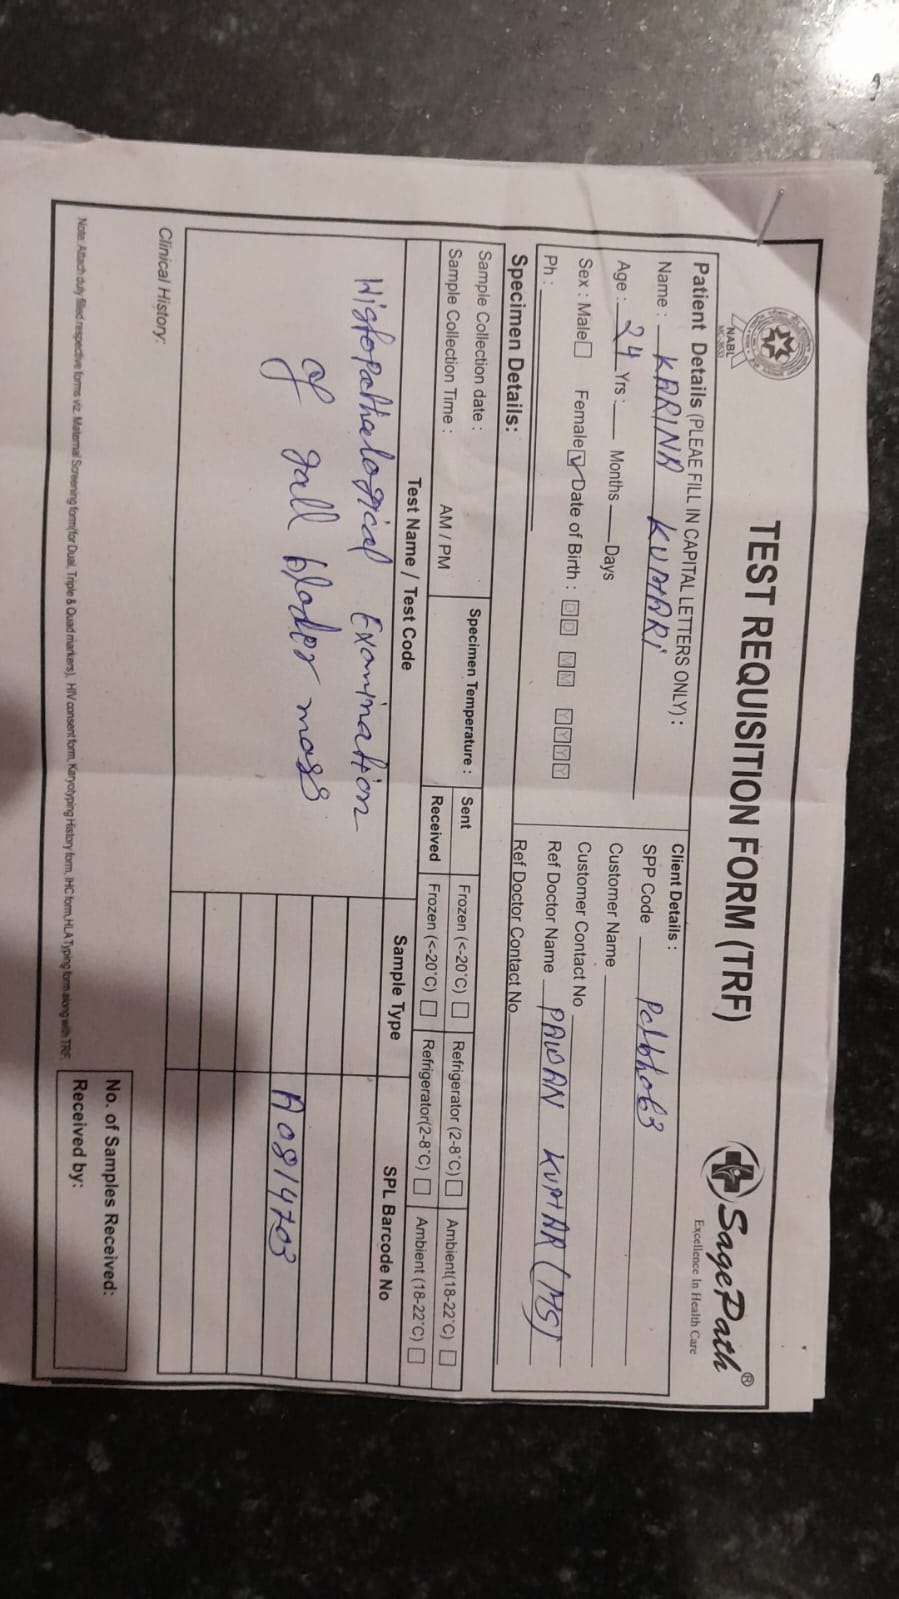 TEST REQUISITION FORM (TRF)
SagePath®
Excellence In Health Care
NABL
Patient Details (PLEAE FILL IN CAPITAL LETTERS ONLY) :
Name : KARINA KUMARI
Age : 24 Yrs : Months Days
Sex : Male Female Date of Birth : DD MM YYYY
Ph :
Client Details :
SPP Code
Customer Name
Customer Contact No
Ref Doctor Name PAWAN KUMAR (MS)
Ref Doctor Contact No
Specimen Details:
Sample Collection date :
Sample Collection Time : AM / PM
Specimen Temperature :
Sent Frozen (<-20°C) Refrigerator (2-8°C) Ambient(18-22°C)
Received Frozen (<-20°C) Refrigerator(2-8°C) Ambient (18-22°C)
Test Name / Test Code Sample Type SPL Barcode No
Histopathalogical Examination
of gall blader mass
A0814703
Clinical History:
No. of Samples Received:
Received by:
Note: Attach duly filled respective forms viz. Maternal Screening form(for Dual, Triple & Quad markers), HIV consent form, Karyotyping History form, IHC form, HLA Typing form along with TRF.